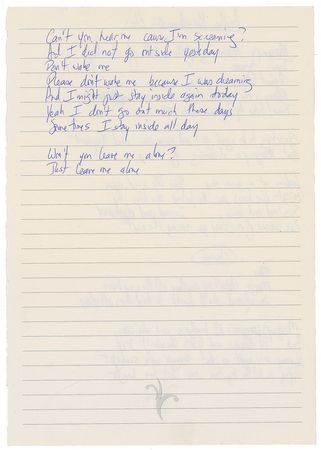 Can't you hear me cause I'm screaming?
And I did not go outside yesterday
Don't wake me
Please don't wake me because I was dreaming
And I might just stay inside again today
Yeah I don't go out much those days
Sometimes I stay inside all day
Won't you leave me alone?
Just leave me alone